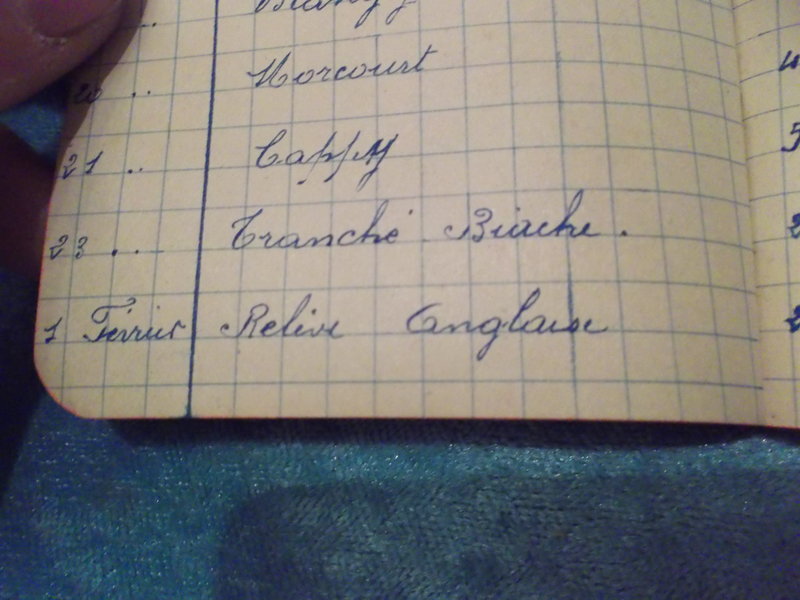 ..
20 .. Morcourt 4
21 .. Cappy 5
23 ... Tranché Biache. 2
1 Février Relève Anglaise 2